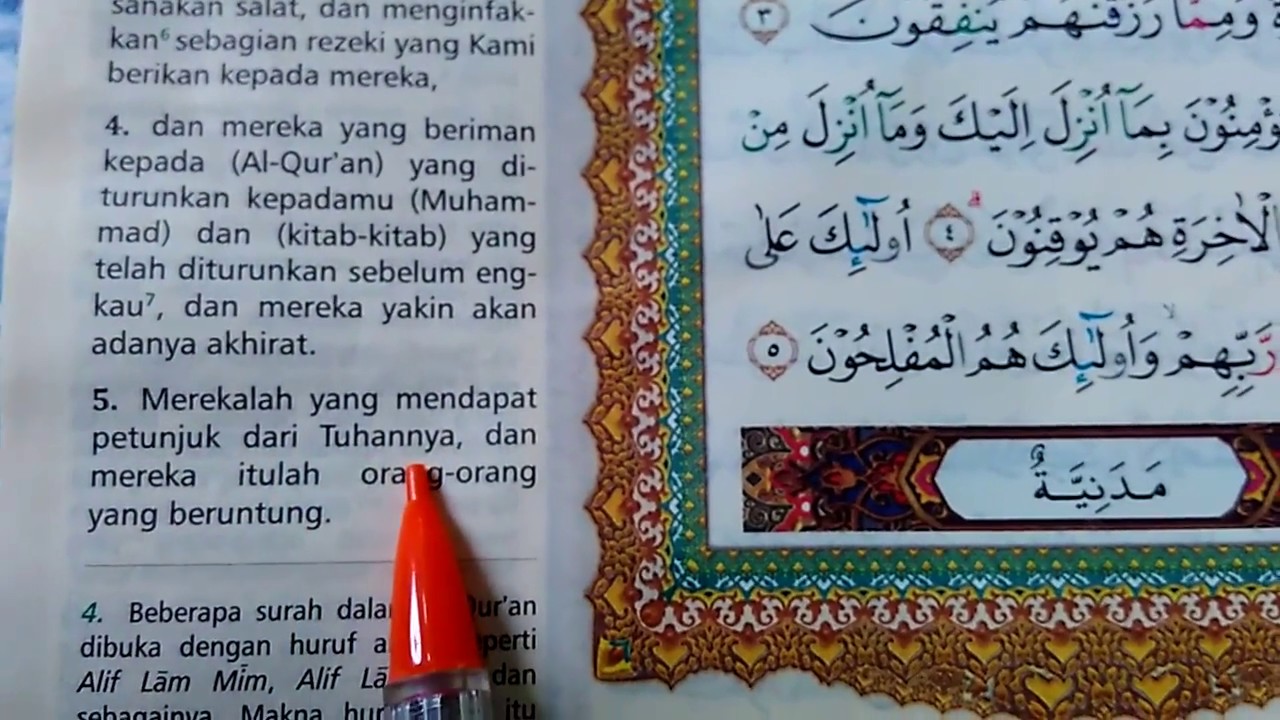 sanakan salat, dan menginfak-
kan⁶ sebagian rezeki yang Kami
berikan kepada mereka,
4. dan mereka yang beriman
kepada (Al-Qur'an) yang di-
turunkan kepadamu (Muham-
mad) dan (kitab-kitab) yang
telah diturunkan sebelum eng-
kau⁷, dan mereka yakin akan
adanya akhirat.
5. Merekalah yang mendapat
petunjuk dari Tuhannya, dan
mereka itulah orang-orang
yang beruntung.
4. Beberapa surah dalam Qur'an
dibuka dengan huruf
Alif Lām Mīm, Alif dan
sebagainya. Makna itu
وَمِمَّا رَزَقْنٰهُمْ يُنْفِقُوْنَ ٣
بِمَآ اُنْزِلَ اِلَيْكَ وَمَآ اُنْزِلَ مِنْ
هُمْ يُوْقِنُوْنَ ۗ ٤ اُولٰۤىِٕكَ عَلٰى
رَّبِّهِمْ ۙ وَاُولٰۤىِٕكَ هُمُ الْمُفْلِحُوْنَ ٥
مَدَنِيَّةٌ